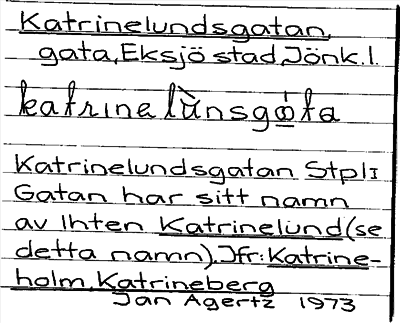 Katrinelundsgatan,
gata, Eksjö stad, Jönk. l.
katrinelùnsgo̲̍ta
Katrinelundsgatan StplI
Gatan har sitt namn
av lhten Katrinelund (se
detta namn). Jfr: Katrine-
holm, Katrineberg
Jan Agertz 1973